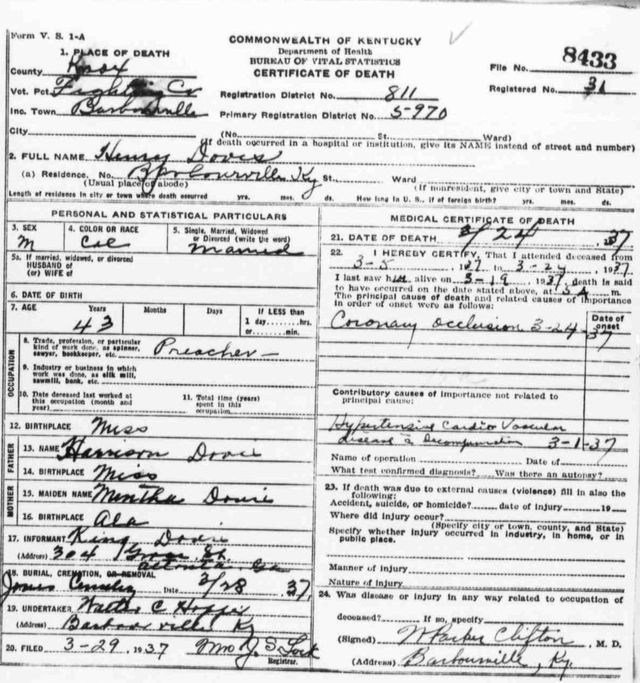 Form V. S. 1-A
COMMONWEALTH OF KENTUCKY
Department of Health
BUREAU OF VITAL STATISTICS
CERTIFICATE OF DEATH
File No. 8433
Registered No. 31
1. PLACE OF DEATH
County Knox
Vot. Pct. Fighting Cr
Inc. Town Barbourville
Registration District No. 811
Primary Registration District No. 5-970
City (No. St. Ward)
(If death occurred in a hospital or institution, give its NAME instead of street and number)
2. FULL NAME Henry Dovis
(a) Residence. No. Barbourville Ky St., Ward
(Usual place of abode) (If nonresident, give city or town and State)
Length of residence in city or town where death occurred yrs. mos. ds. How long in U. S., if of foreign birth? yrs. mos. ds.
PERSONAL AND STATISTICAL PARTICULARS
3. SEX M
4. COLOR OR RACE Col
5. Single, Married, Widowed or Divorced (write the word) Married
5a. If married, widowed, or divorced
HUSBAND of
(or) WIFE of
6. DATE OF BIRTH
7. AGE Years Months Days If LESS than
43
1 day,....hrs.
or....min.
OCCUPATION
8. Trade, profession, or particular
kind of work done, as spinner,
sawyer, bookkeeper, etc. Preacher
9. Industry or business in which
work was done, as silk mill,
sawmill, bank, etc.
10. Date deceased last worked at
this occupation (month and
year)
11. Total time (years)
spent in this
occupation
12. BIRTHPLACE Miss
FATHER
13. NAME Harrison Dovis
14. BIRTHPLACE Miss
MOTHER
15. MAIDEN NAME Mintha
16. BIRTHPLACE Ala
17. INFORMANT King
(Address) 304 St.
Ga
18. BURIAL, CREMATION, OR REMOVAL
Jones Date 3/28 37
19. UNDERTAKER Walter C Hopper
(Address) Barbourville Ky
20. FILED 3-29 1937 Mrs J. S. Lock
Registrar.
MEDICAL CERTIFICATE OF DEATH
21. DATE OF DEATH 3/24 37
22. I HEREBY CERTIFY, That I attended deceased from
3-5, 1937 to 3-23, 1937.
I last saw him alive on 3-19 1937, death is said
to have occurred on the date stated above, at m.
The principal cause of death and related causes of importance
in order of onset were as follows:
Date of
onset
Coronary occlusion 3-24-37
Contributory causes of importance not related to
principal cause:
Hypertensive Cardio Vascular
disease c̄ Decompensation 3-1-37
Name of operation Date of
What test confirmed diagnosis? Was there an autopsy?
23. If death was due to external causes (violence) fill in also the
following:
Accident, suicide, or homicide? date of injury 19
Where did injury occur?
(Specify city or town, county, and State)
Specify whether injury occurred in industry, in home, or in
public place.
Manner of injury
Nature of injury
24. Was disease or injury in any way related to occupation of
deceased? If so, specify
(Signed) Clifton, M. D.
(Address) Barbourville, Ky.